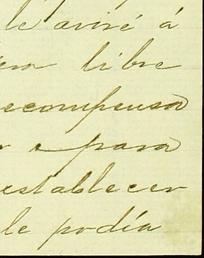 le avisé á
era libre
recompensa
r o para
establecer
le podía